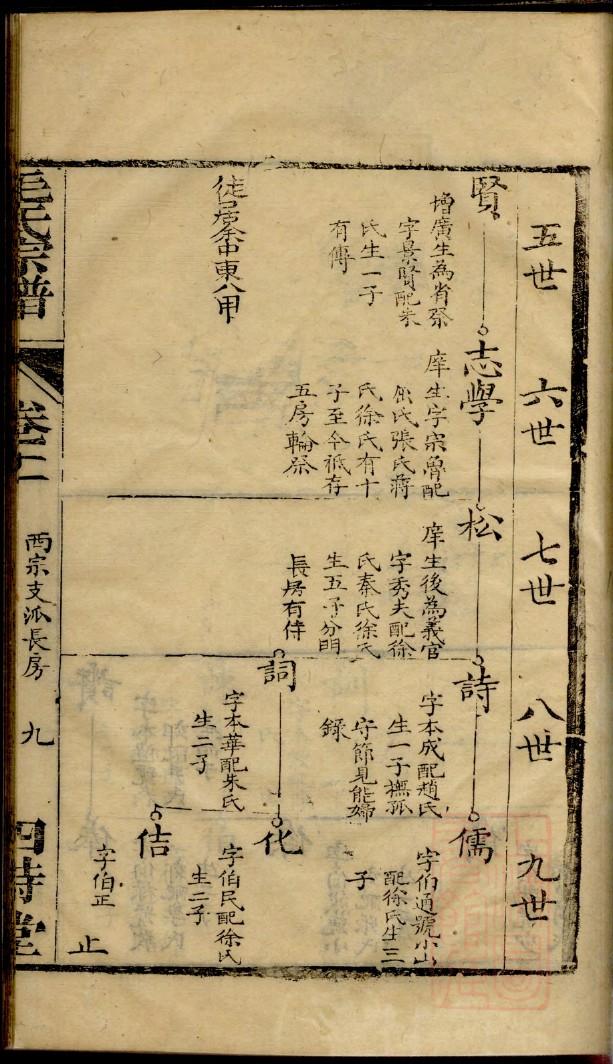 五世
六世
七世
八世
九世
賢
增廣生為省祭
字景賢配朱
氏生一子
有傳
徒居余中東八甲
志學
庠生字宗魯配
氏張氏蔣
氏徐氏有十
子至今祇存
五房輪祭
松
庠生後為義官
字秀夫配徐
氏秦氏徐氏
生五子分門
長房有傳
詩
字本成配趙氏
生一子撫孤
守節見能婦
錄
詞
字本華配朱氏
生二子
儒
字伯通號小山
配徐氏生三
子
化
字伯民配徐氏
生二子
佶
字伯正
止
毛氏宗譜
卷十二
西宗支派長房
九
四持堂